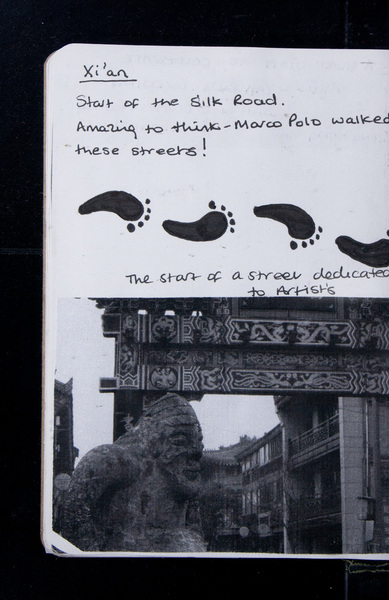 Xi'an
Start of the Silk Road.
Amazing to think - Marco Polo walked
these streets!
The start of a street dedicated
to Artist's